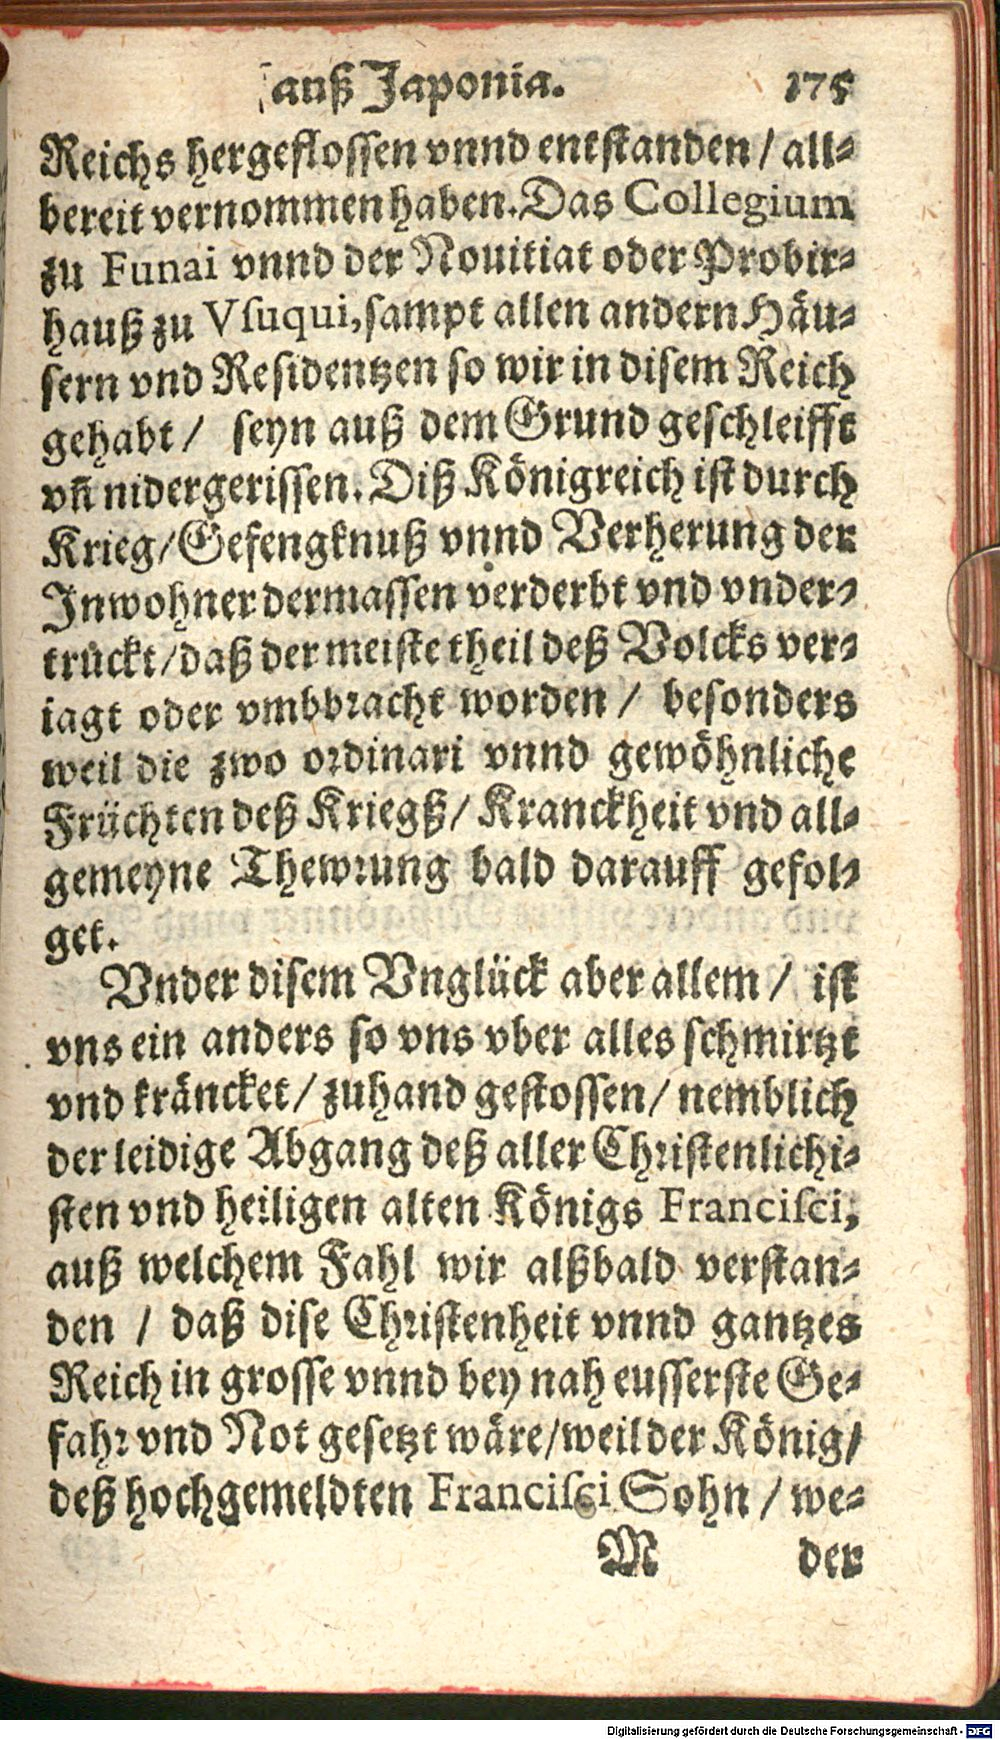 auß Japonia. 175
Reichs hergeflossen vnnd entstanden / all-
bereit vernommen haben. Das Collegium
zu Funai vnnd der Nouitiat oder Probir-
hauß zu Vſuqui, sampt allen andern Häu-
sern vnd Residentzen so wir in disem Reich
gehabt / seyn auß dem Grund geschleifft
vñ nidergerissen. Diß Königreich ist durch
Krieg / Gefengknuß vnnd Verherung der
Inwohner dermassen verderbt vnd vnder-
trückt / daß der meiste theil deß Volcks ver-
iagt oder vmbbracht worden / besonders
weil die zwo ordinari vnnd gewöhnliche
Früchten deß Kriegß / Kranckheit vnd all-
gemeyne Thewrung bald darauff gefol-
get.
Vnder disem Vnglück aber allem / ist
vns ein anders so vns vber alles schmirtzt
vnd kräncket / zuhand gestossen / nemblich
der leidige Abgang deß aller Christenlichi-
sten vnd heiligen alten Königs Franciſci,
auß welchem Fahl wir alßbald verstan-
den / daß dise Christenheit vnnd gantzes
Reich in grosse vnnd bey nah eusserste Ge-
fahr vnd Not gesetzt wäre / weil der König /
deß hochgemeldten Franciſci Sohn / we-
M der
Digitalisierung gefördert durch die Deutsche Forschungsgemeinschaft - DFG